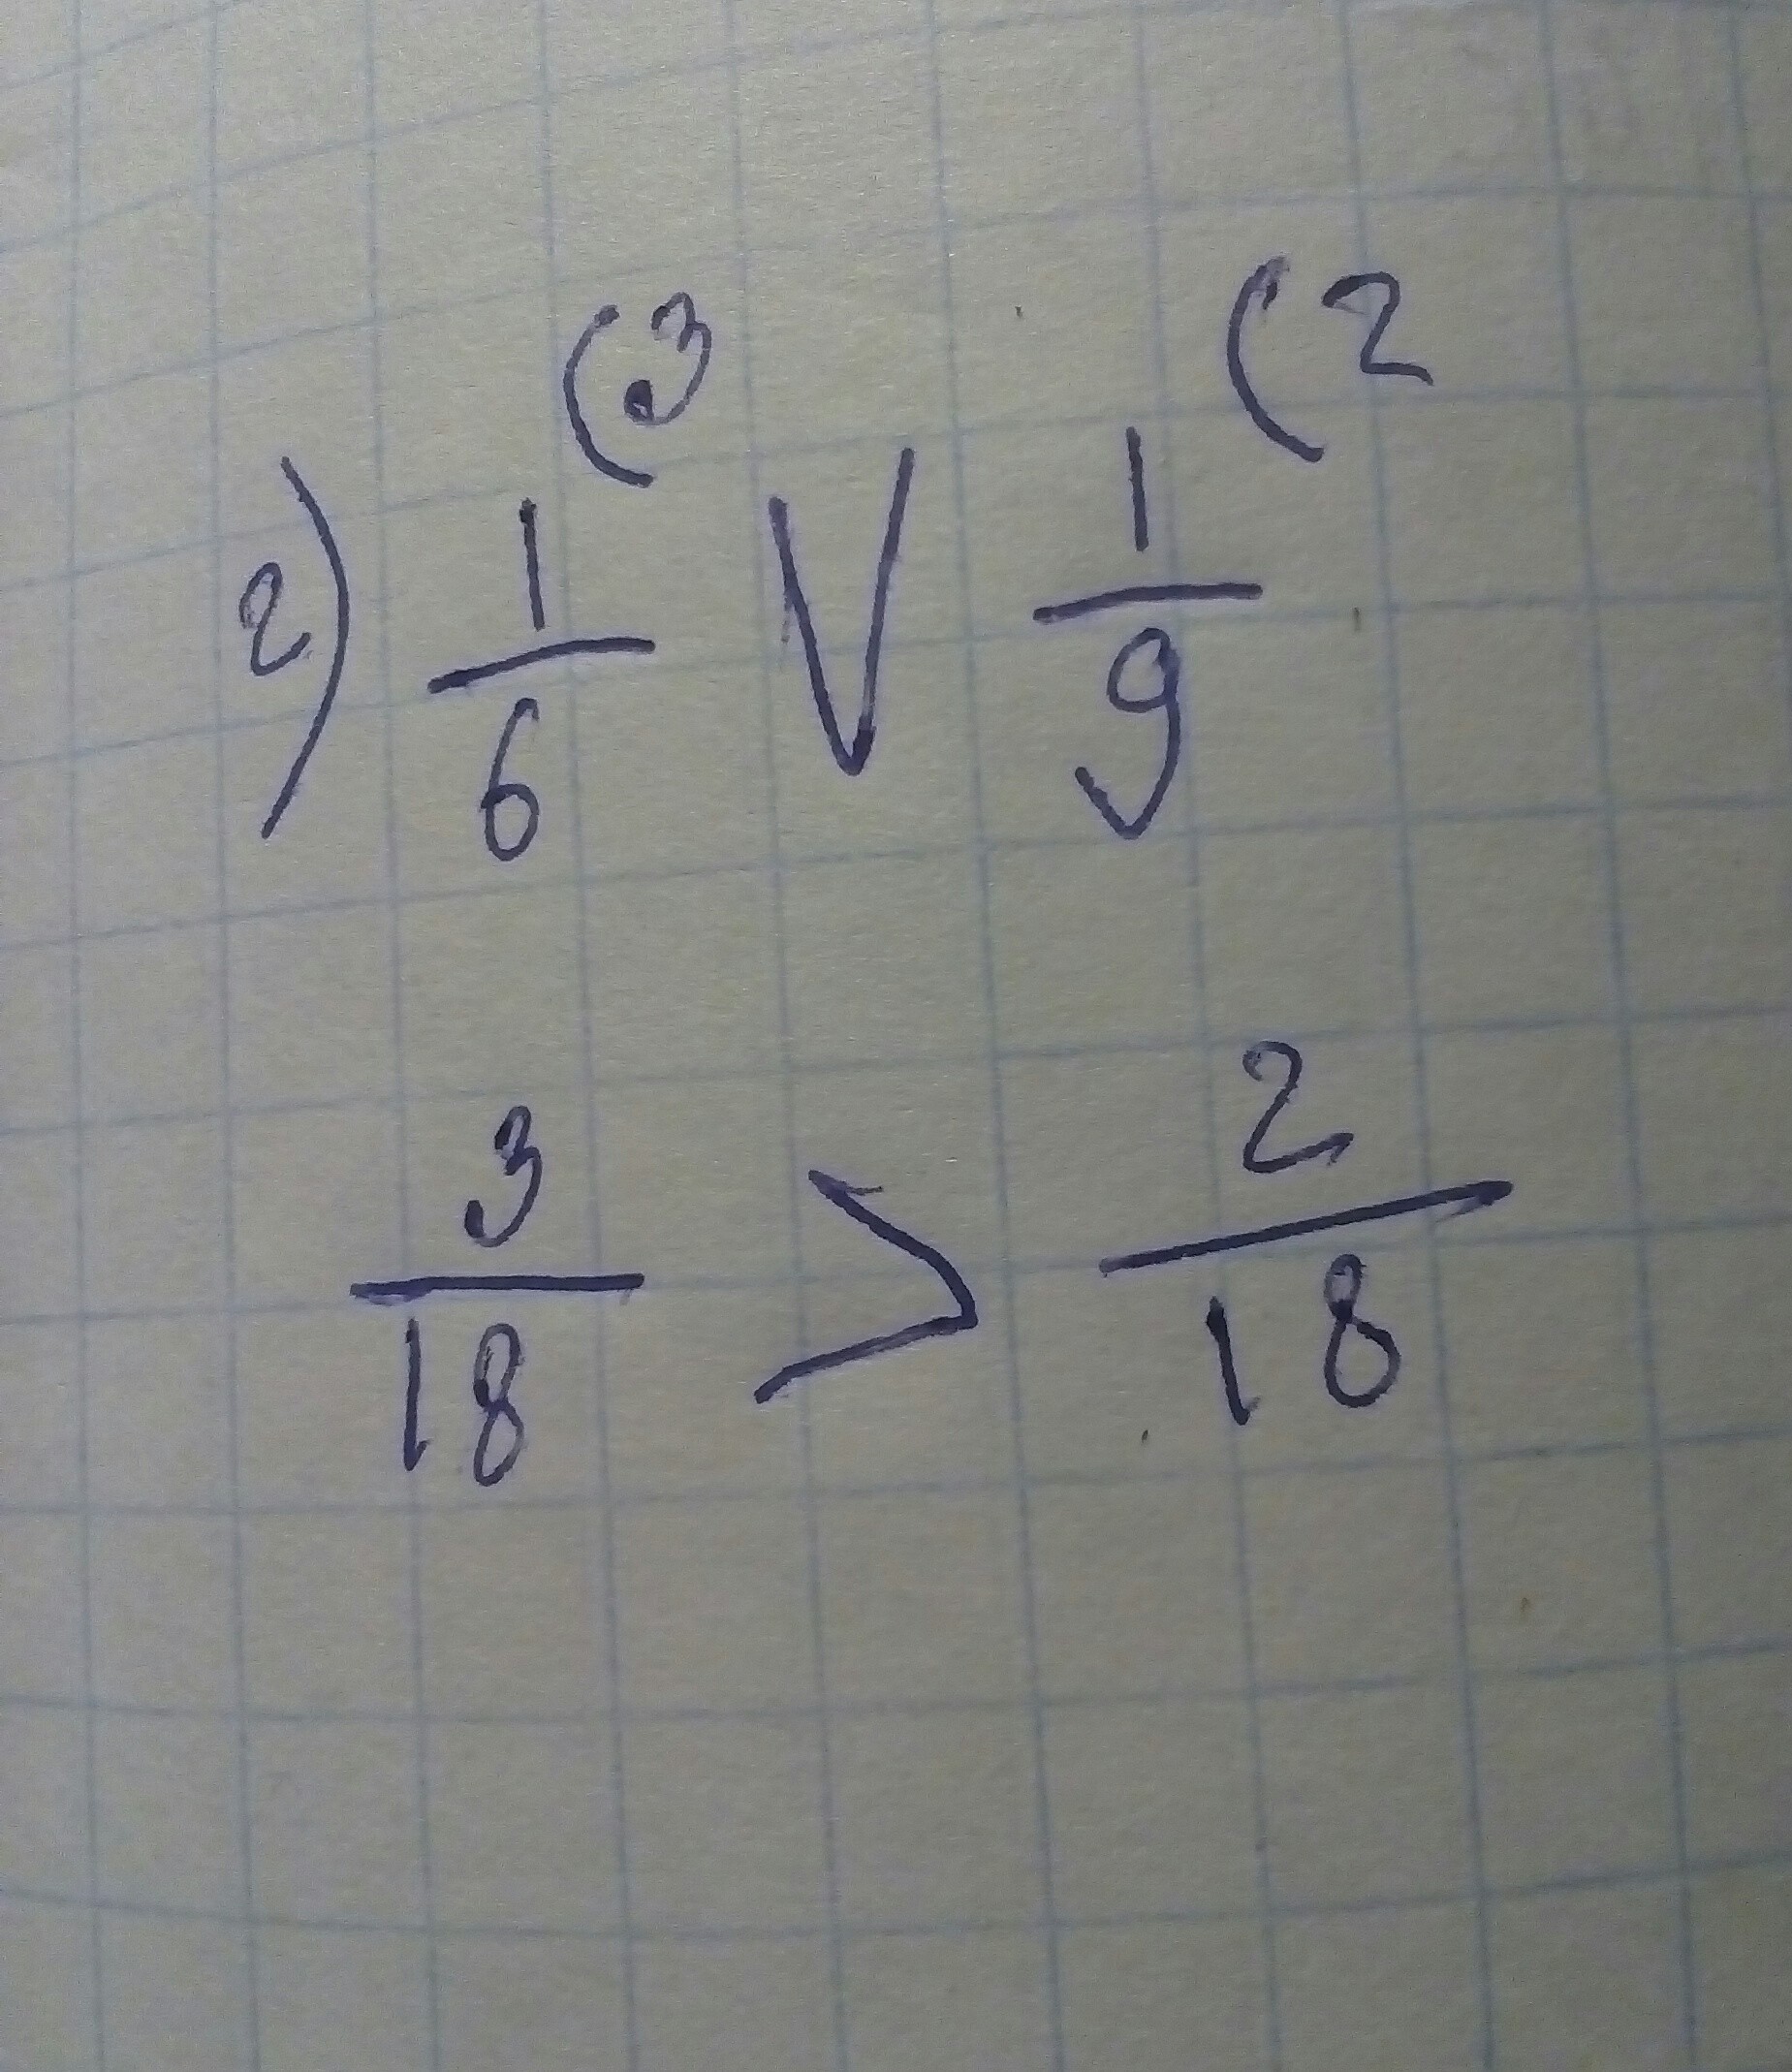 2) 1/6 (3 V 1/9 (2
3/18 > 2/18